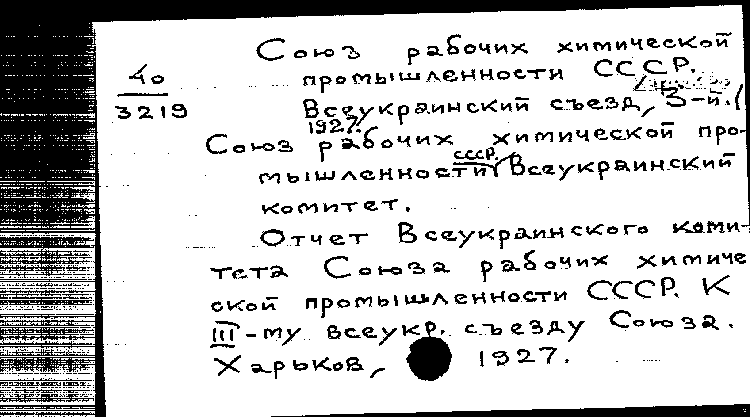 Союз рабочих химической
40
промышленности СССР.
3219
Всеукраинский съезд, 3-й.
1927.
Союз рабочих химической про-
мышленности СССР. Всеукраинский
комитет.
Отчет Всеукраинского коми-
тета Союза рабочих химиче
ской промышленности СССР. К
III-му всеукр. съезду Союза.
Харьков, 1927.